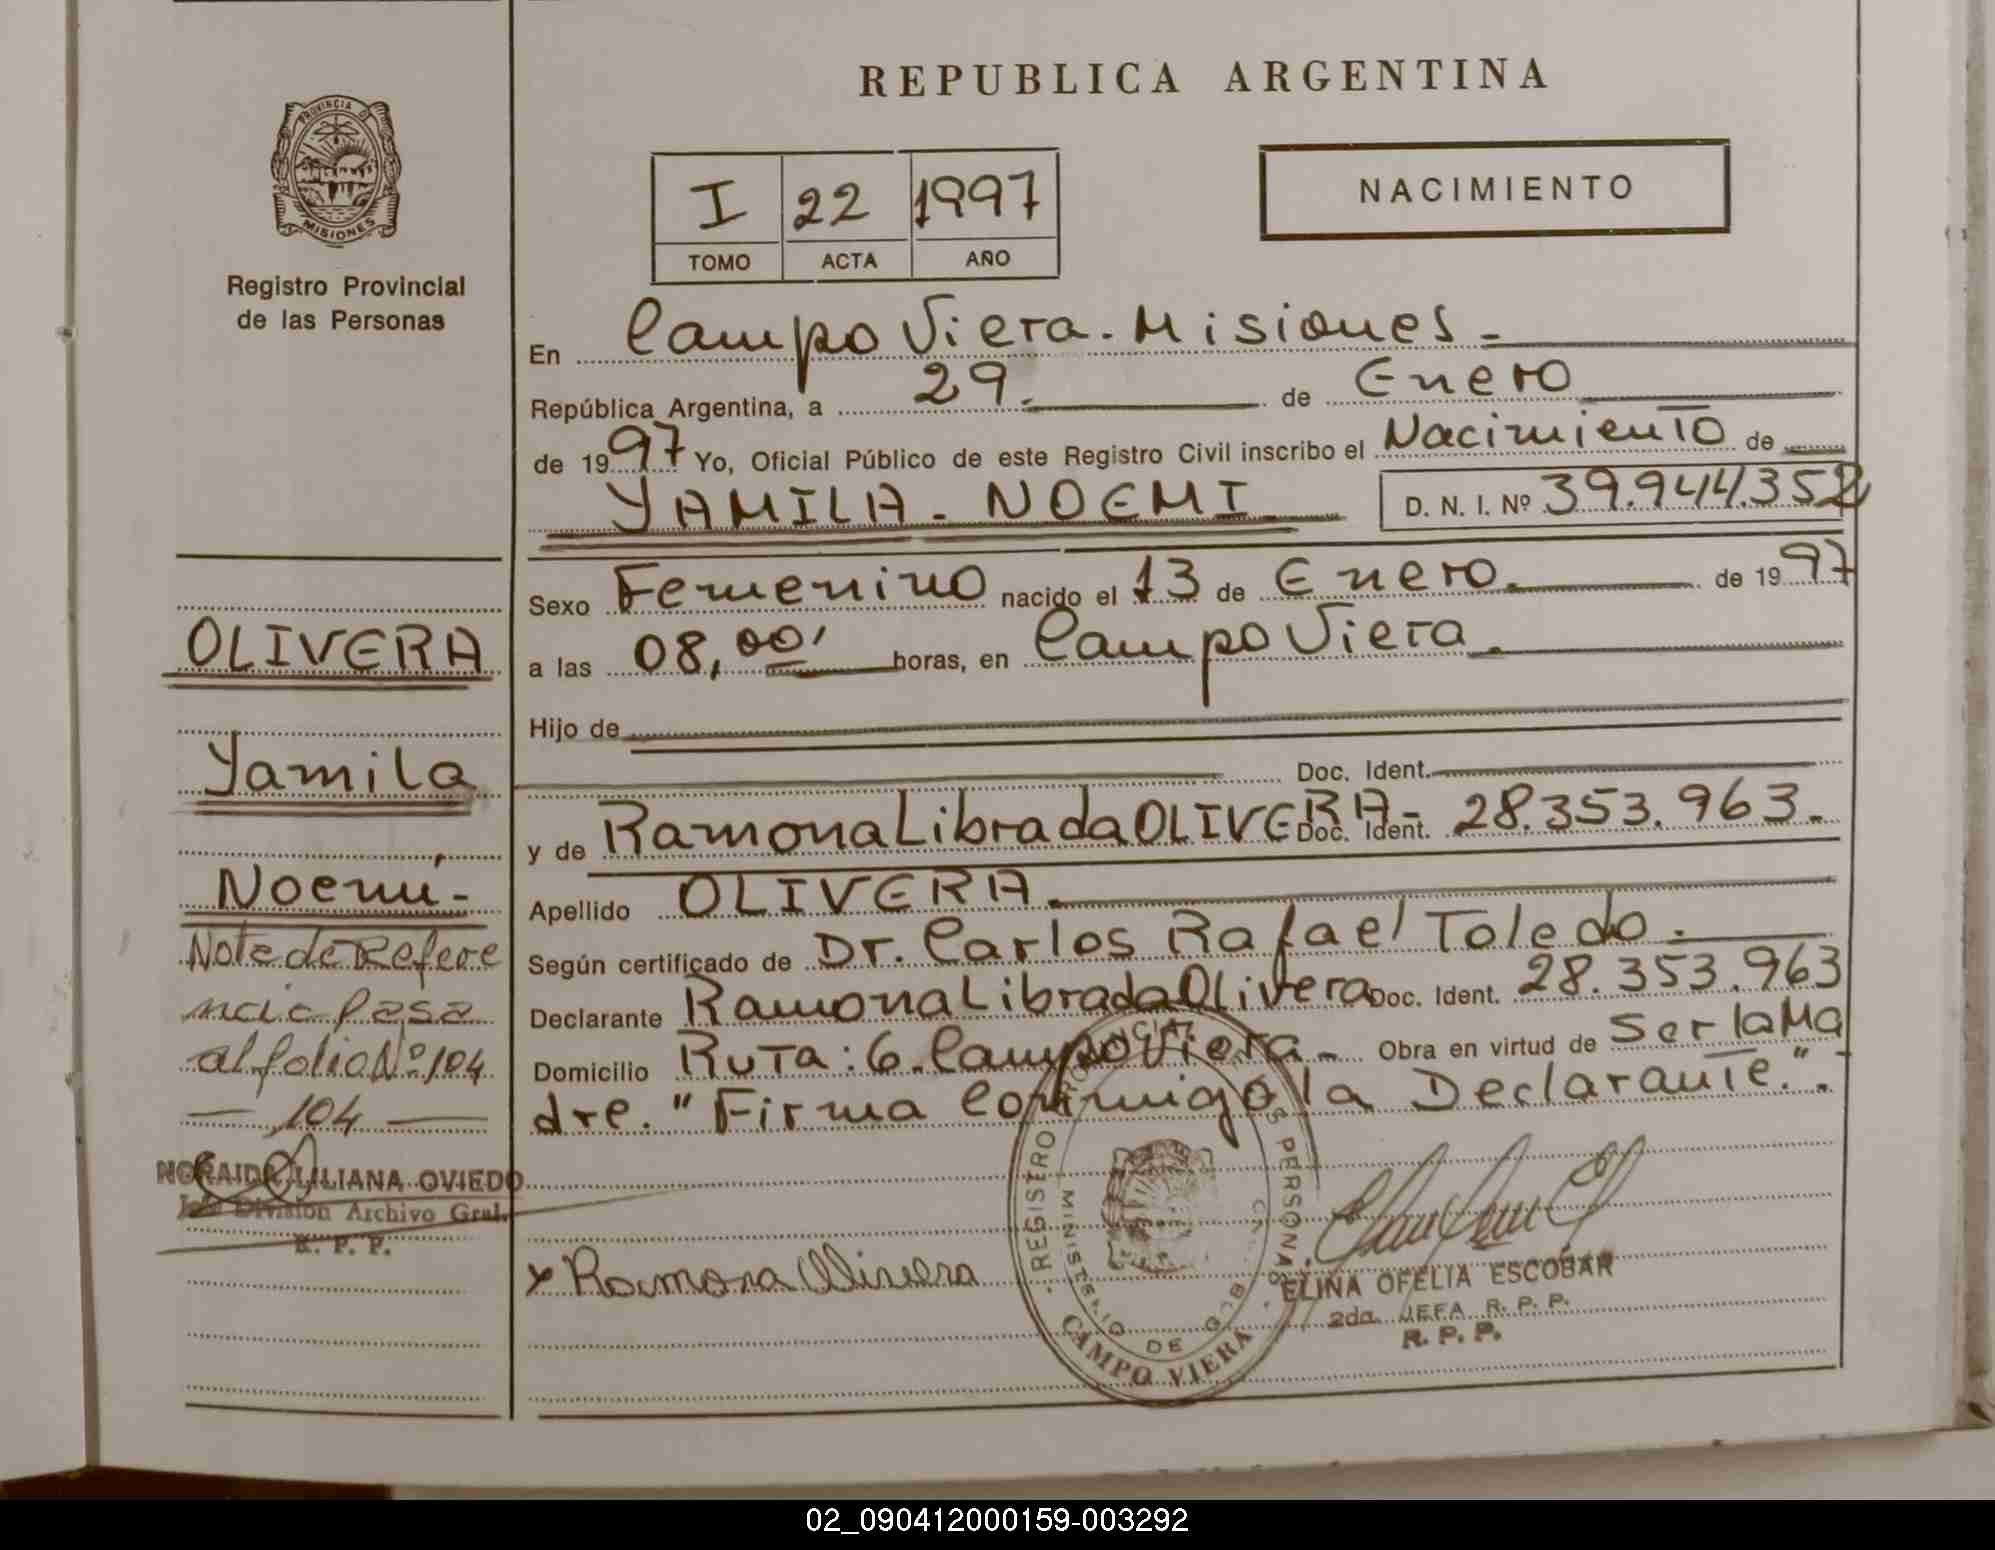 REPUBLICA ARGENTINA
PROVINCIA D
MISIONES
Registro Provincial
de las Personas
I 22 1997
TOMO ACTA AÑO
NACIMIENTO
En Campo Viera. Misiones.
República Argentina, a 29. de Enero
de 1997 Yo, Oficial Público de este Registro Civil inscribo el Nacimiento de
YAMILA. NOEMI D. N. I. Nº 39.944.352
Sexo Femenino nacido el 13 de Enero. de 1997
a las 08,00' horas, en Campo Viera.
Hijo de
Doc. Ident.
y de Ramona Librada OLIVERA- Doc. Ident. 28.353.963.
Apellido OLIVERA.
Según certificado de Dr. Carlos Rafael Toledo.
Declarante Ramona Librada Olivera Doc. Ident. 28.353.963
Domicilio Ruta: 6. Campo Viera- Obra en virtud de Ser la Ma
dre. "Firma Conmigo la Declarante.".
OLIVERA
Yamila
Noemí-
Nota de Refere
ncia pasa
al folio Nº 104
— 104 —
NORAIDA LILIANA OVIEDO
Jefe División Archivo Gral.
R. P. P.
x Ramona Olivera
REGISTRO PROVINCIAL PERSONAS
MINISTERIO DE
CAMPO VIERA
ELINA OFELIA ESCOBAR
2da. JEFA R. P. P.
R. P. P.
02_090412000159-003292